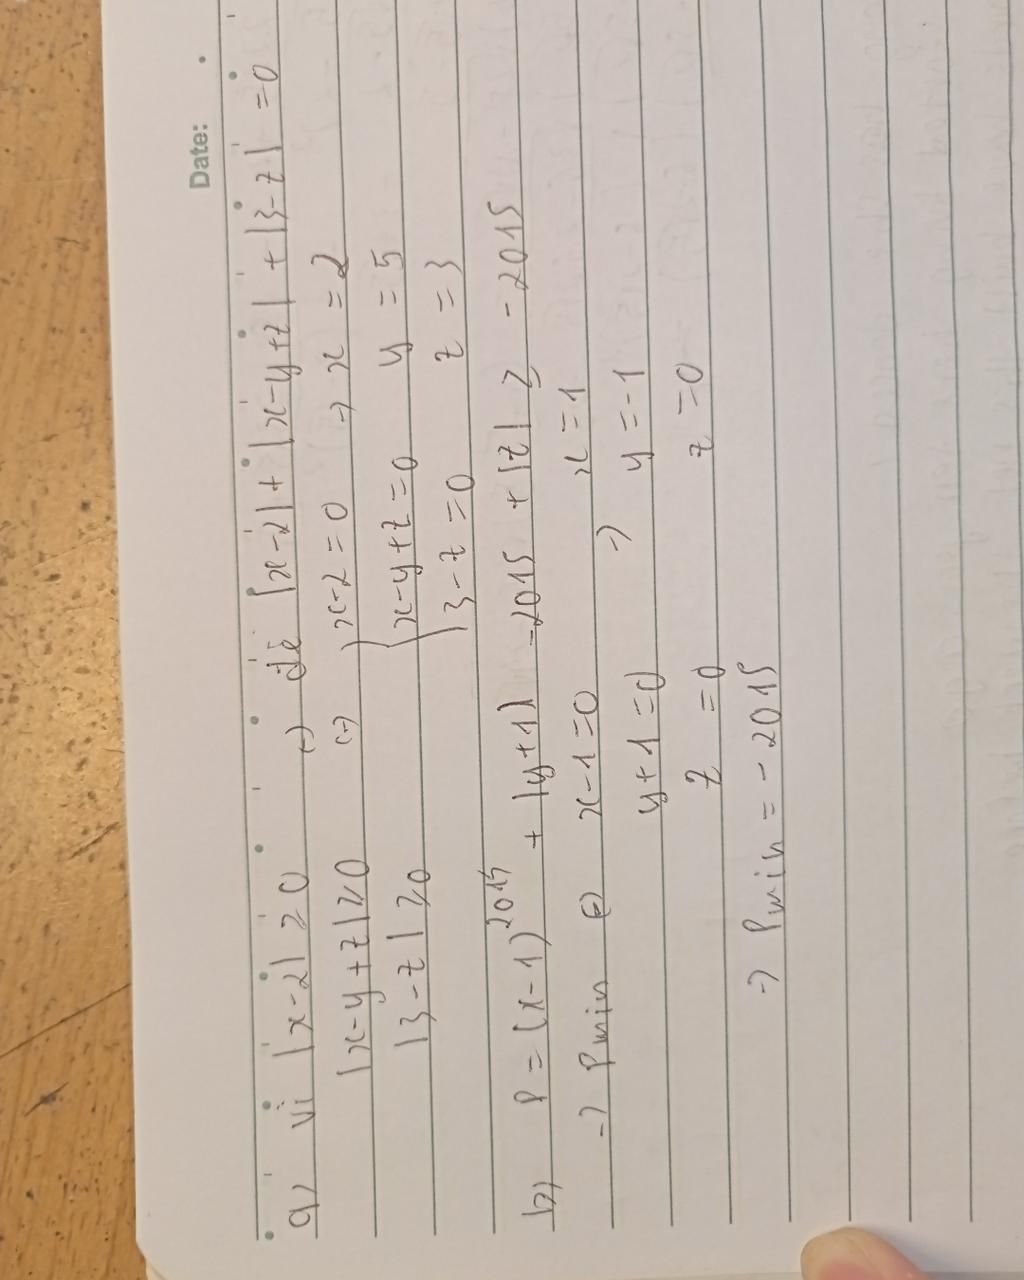 Date:
a) vì |x-2| ≥ 0 (-) để |x-2| + |x-y+z| + |3-z| = 0
|x-y+z| ≥ 0 (-) x-2=0 -> x = 2
|3-z| ≥ 0 x-y+z=0 y = 5
3-z=0 z = 3
b) P = (x-1)^2015 + |y+1| -2015 + |z| ≥ -2015
-> Pmin (-) x-1=0 x=1
y+1=0 -> y=-1
z=0 z=0
-> Pmin = -2015